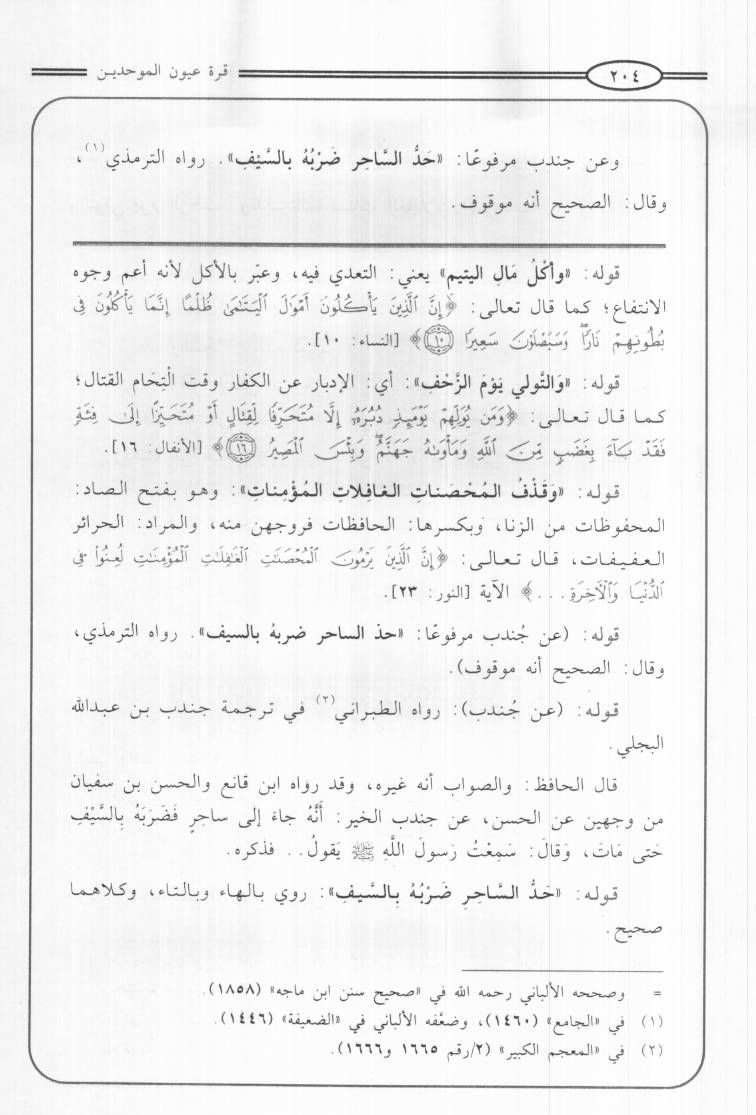 ٢٠٤ قرة عيون الموحدين
وعن جندب مرفوعًا: «حَدُّ السَّاحِر ضَرْبُهُ بالسَّيْفِ». رواه الترمذي(١)،
وقال: الصحيح أنه موقوف.
قوله: «وأكْلُ مَالِ اليتيم» يعني: التعدي فيه، وعبّر بالأكل لأنه أعم وجوه
الانتفاع؛ كما قال تعالى: ﴿إِنَّ الَّذِينَ يَأْكُلُونَ أَمْوَالَ الْيَتَامَىٰ ظُلْمًا إِنَّمَا يَأْكُلُونَ فِي
بُطُونِهِمْ نَارًا وَسَيَصْلَوْنَ سَعِيرًا ١٠﴾ [النساء: ١٠].
قوله: «وَالتَّولي يَوْمَ الزَّحْفِ»: أي: الإدبار عن الكفار وقت الْتِحَام القتال؛
كما قال تعالى: ﴿وَمَن يُوَلِّهِمْ يَوْمَئِذٍ دُبُرَهُ إِلَّا مُتَحَرِّفًا لِّقِتَالٍ أَوْ مُتَحَيِّزًا إِلَىٰ فِئَةٍ
فَقَدْ بَاءَ بِغَضَبٍ مِّنَ اللَّهِ وَمَأْوَاهُ جَهَنَّمُ وَبِئْسَ الْمَصِيرُ ١٦﴾ [الأنفال: ١٦].
قوله: «وَقَذْفُ المُحْصَناتِ الغَافِلَاتِ المُؤْمِناتِ»: وهو بفتح الصاد:
المحفوظات من الزنا، وبكسرها: الحافظات فروجهن منه، والمراد: الحرائر
العفيفات، قال تعالى: ﴿إِنَّ الَّذِينَ يَرْمُونَ الْمُحْصَنَاتِ الْغَافِلَاتِ الْمُؤْمِنَاتِ لُعِنُوا فِي
الدُّنْيَا وَالْآخِرَةِ...﴾ الآية [النور: ٢٣].
قوله: (عن جُندب مرفوعًا: «حدّ الساحر ضربهُ بالسيف». رواه الترمذي،
وقال: الصحيح أنه موقوف).
قوله: (عن جُندب): رواه الطبراني(٢) في ترجمة جندب بن عبدالله
البجلي.
قال الحافظ: والصواب أنه غيره، وقد رواه ابن قانع والحسن بن سفيان
من وجهين عن الحسن، عن جندب الخير: أنَّهُ جاءَ إلى ساحِرٍ فَضَرَبَهُ بِالسَّيْفِ
حَتى مَاتَ، وَقَالَ: سَمِعْتُ رَسولَ اللَّهِ ﷺ يَقولُ.. فذكره.
قوله: «حَدُّ السَّاحِرِ ضَرْبُهُ بِالسَّيفِ»: روي بالهاء وبالتاء، وكلاهما
صحيح.
= وصححه الألباني رحمه الله في «صحيح سنن ابن ماجه» (١٨٥٨).
(١) في «الجامع» (١٤٦٠)، وضعَّفه الألباني في «الضعيفة» (١٤٤٦).
(٢) في «المعجم الكبير» (٢/رقم ١٦٦٥ و١٦٦٦).